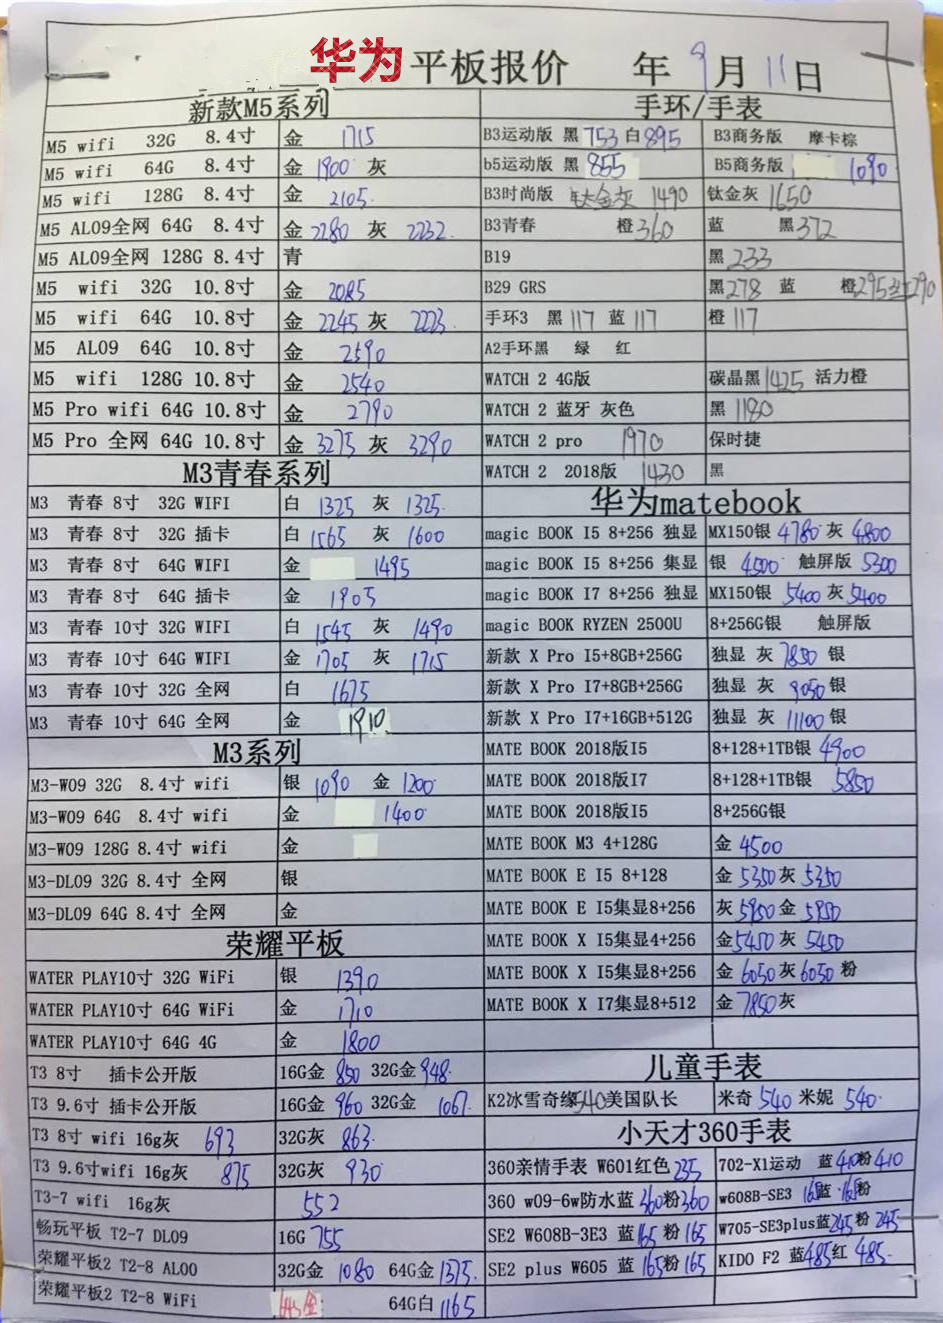 华为 平板报价 年 9月 11日
新款M5系列
M5 wifi 32G 8.4寸 金 1715
M5 wifi 64G 8.4寸 金 1900 灰
M5 wifi 128G 8.4寸 金 2105
M5 AL09全网 64G 8.4寸 金 2280 灰 2232
M5 AL09全网 128G 8.4寸 青
M5 wifi 32G 10.8寸 金 2085
M5 wifi 64G 10.8寸 金 2245 灰 2223
M5 AL09 64G 10.8寸 金 2590
M5 wifi 128G 10.8寸 金 2540
M5 Pro wifi 64G 10.8寸 金 2790
M5 Pro 全网 64G 10.8寸 金 3275 灰 3290
M3青春系列
M3 青春 8寸 32G WIFI 白 1325 灰 1325
M3 青春 8寸 32G 插卡 白 1565 灰 1600
M3 青春 8寸 64G WIFI 金 1495
M3 青春 8寸 64G 插卡 金 1905
M3 青春 10寸 32G WIFI 白 1545 灰 1490
M3 青春 10寸 64G WIFI 金 1705 灰 1715
M3 青春 10寸 32G 全网 白 1675
M3 青春 10寸 64G 全网 金 1910
M3系列
M3-W09 32G 8.4寸 wifi 银 1090 金 1200
M3-W09 64G 8.4寸 wifi 金 1400
M3-W09 128G 8.4寸 wifi 金
M3-DL09 32G 8.4寸 全网 银
M3-DL09 64G 8.4寸 全网 金
荣耀平板
WATER PLAY10寸 32G WiFi 银 1390
WATER PLAY10寸 64G WiFi 金 1710
WATER PLAY10寸 64G 4G 金 1800
T3 8寸 插卡公开版 16G金 850 32G金 948
T3 9.6寸 插卡公开版 16G金 960 32G金 1067
T3 8寸 wifi 16g灰 693 32G灰 863
T3 9.6寸wifi 16g灰 875 32G灰 930
T3-7 wifi 16g灰 552
畅玩平板 T2-7 DL09 16G 755
荣耀平板2 T2-8 AL00 32G金 1080 64G金 1375
荣耀平板2 T2-8 WiFi 64G白 1165
手环/手表
B3运动版 黑 753 白 895 B3商务版 摩卡棕
b5运动版 黑 855 B5商务版 1090
B3时尚版 钛金灰 1490 钛金灰 1650
B3青春 橙 360 蓝 黑 372
B19 黑 233
B29 GRS 黑 278 蓝 橙 295 红 290
手环3 黑 117 蓝 117 橙 117
A2手环黑 绿 红
WATCH 2 4G版 碳晶黑 1425 活力橙
WATCH 2 蓝牙 灰色 黑 1180
WATCH 2 pro 1970 保时捷
WATCH 2 2018版 1430 黑
华为matebook
magic BOOK I5 8+256 独显 MX150银 4780 灰 4800
magic BOOK I5 8+256 集显 银 4500 触屏版 5300
magic BOOK I7 8+256 独显 MX150银 5400 灰 5400
magic BOOK RYZEN 2500U 8+256G银 触屏版
新款 X Pro I5+8GB+256G 独显 灰 7850 银
新款 X Pro I7+8GB+256G 独显 灰 9050 银
新款 X Pro I7+16GB+512G 独显 灰 11100 银
MATE BOOK 2018版I5 8+128+1TB银 4900
MATE BOOK 2018版I7 8+128+1TB银 5850
MATE BOOK 2018版I5 8+256G银
MATE BOOK M3 4+128G 金 4500
MATE BOOK E I5 8+128 金 5350 灰 5350
MATE BOOK E I5集显8+256 灰 5950 金 5950
MATE BOOK X I5集显4+256 金 5450 灰 5450
MATE BOOK X I5集显8+256 金 6050 灰 6050 粉
MATE BOOK X I7集显8+512 金 7850 灰
儿童手表
K2冰雪奇缘 540 美国队长 米奇 540 米妮 540
小天才360手表
360亲情手表 W601红色 235 702-X1运动 蓝 410 粉 410
360 w09-6w防水蓝 360 粉 360 w608B-SE3 165 蓝 165 粉
SE2 W608B-3E3 蓝 165 粉 165 W705-SE3plus蓝 245 粉 245
SE2 plus W605 蓝 165 粉 165 KIDO F2 蓝 485 红 485